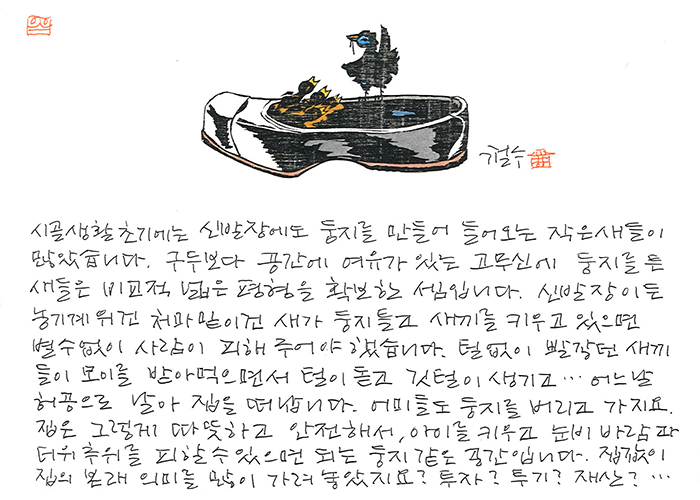 철수
시골생활 초기에는 신발장에도 둥지를 만들어 들어오는 작은새들이
많았습니다. 구두보다 공간에 여유가 있는 고무신에 둥지를 튼
새들은 비교적 넓은 평형을 확보한 셈입니다. 신발장이든
농기계위건 처마밑이건 새가 둥지틀고 새끼를 키우고 있으면
별수없이 사람이 피해 주어야 했습니다. 털없이 빨갛던 새끼
들이 모이를 받아먹으면서 털이 돋고 깃털이 생기고… 어느날
허공으로 날아 집을 떠납니다. 어미들도 둥지를 버리고 가지요.
집은 그렇게 따뜻하고 안전해서, 아이를 키우고 눈비 바람과
더위 추위를 피할수 있으면 되는 둥지 같은 공간입니다. 집값이
집의 본래 의미를 많이 가려 놓았지요? 투자? 투기? 재산? …